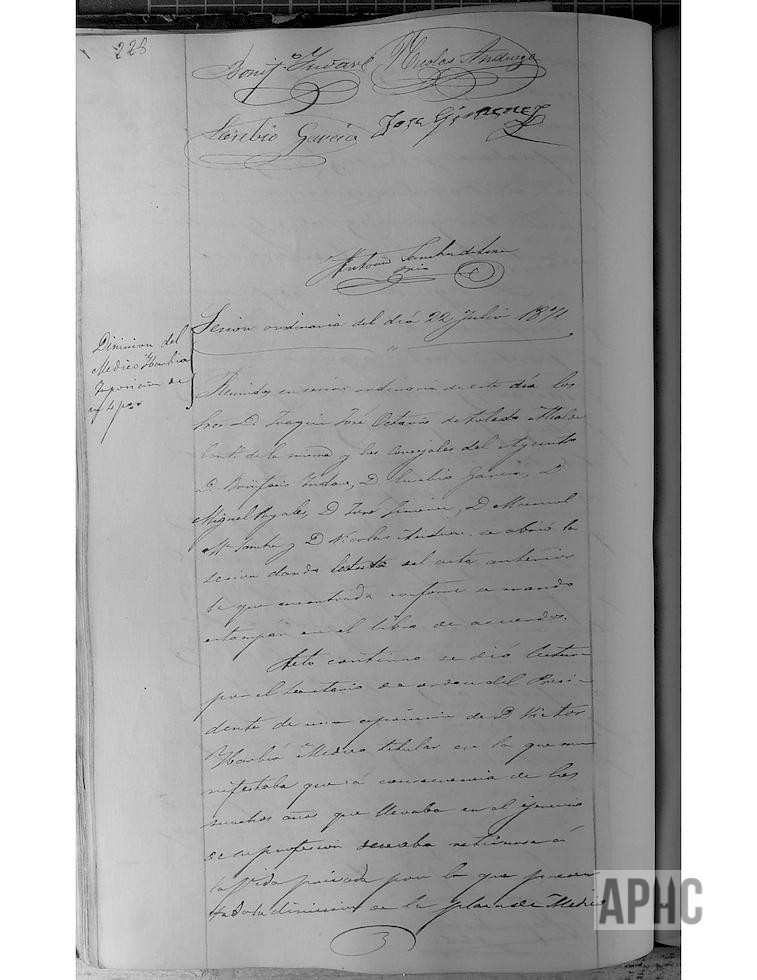 223
Bonif.º Yndave Nicolas Andueza
Eusebio Garcia Jose Gimenez
Antonio
Sesion ordinaria del dia 22 Julio 1871
Dimision del
Medico Harbia
Reunidos en sesion ordinaria de este dia los
Sres. D. Joaquin José Octavio de Toledo Alcalde
y los Concejales del Ayunto
D. Bonifacio Yndave, D. Eusebio Garcia, D.
Miguel Royales, D. José Gimenez, D. Manuel
Mª Sancho y D. Nicolas Andueza. se abrió la
sesion dando lectura del acta anterior
la que encontrada conforme se mandó
estampar en el libro de acuerdos.
Acto continuo se dió lectura
por el Secretario de orden del Presi-
dente de una esposicion de D. Victor
Harbia Medico titular en la que ma-
nifestaba que á consecuencia de los
muchos años que llevaba en el ejercicio
de su profesion deseaba retirarse á
la vida privada por lo que presen-
taba la dimision de la plaza de Medico
APHC